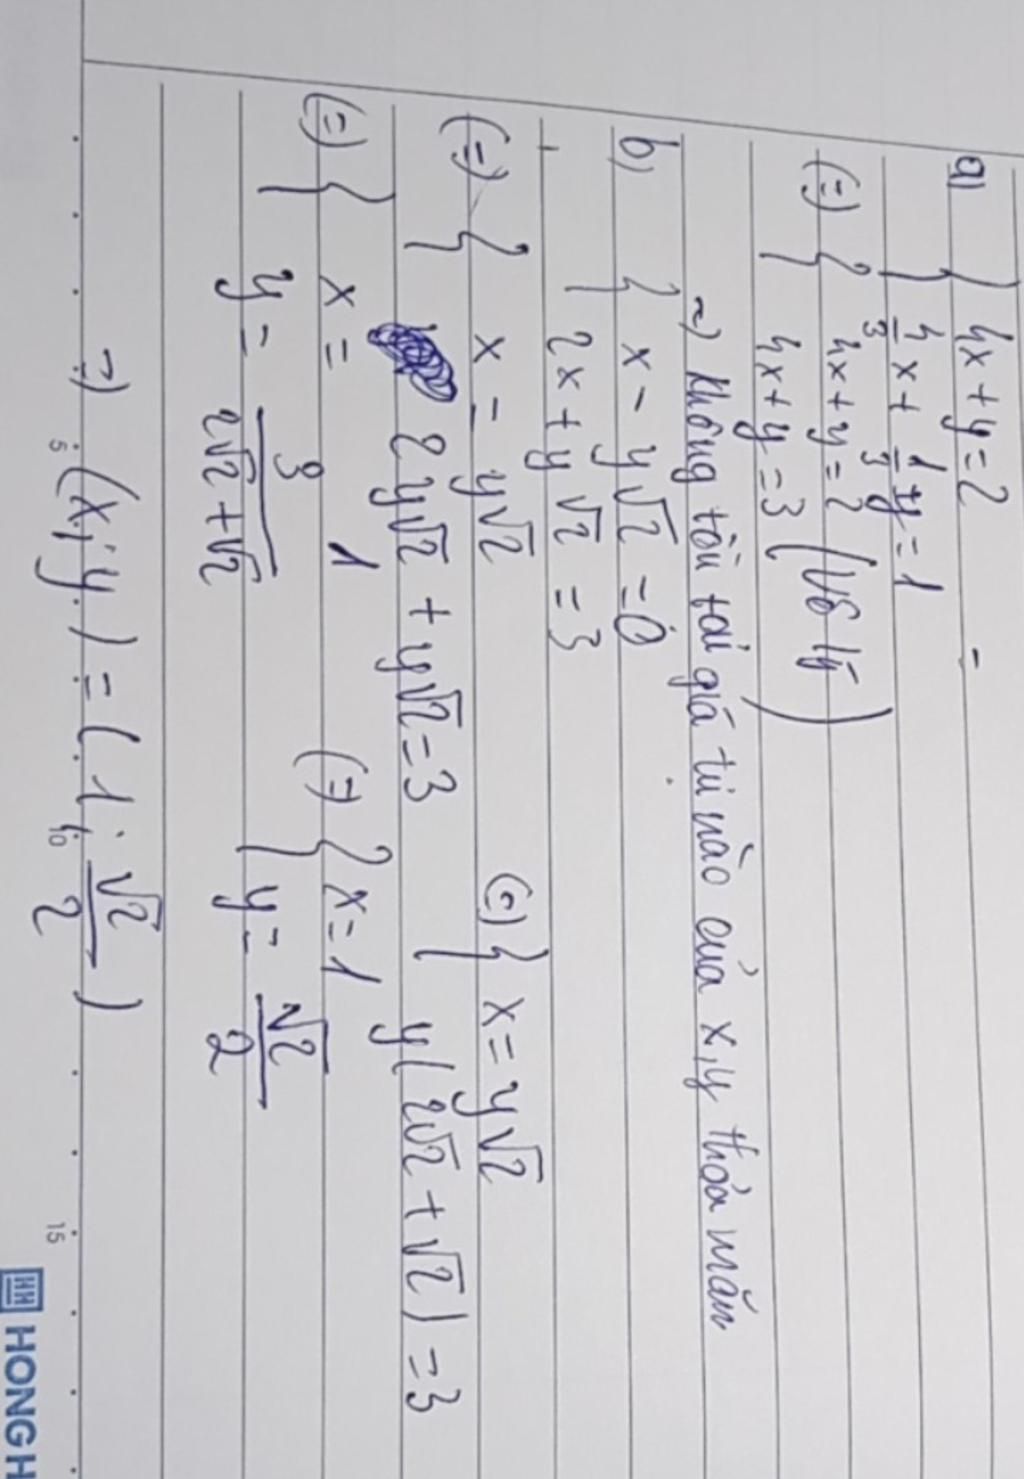 a) { 4x + y = 2
4/3 x + 1/3 y = 1
(=) { 4x + y = 2
4x + y = 3 (Vô lý)
~) Không tồn tại giá trị nào của x, y thỏa mãn
b) { x - y√2 = 0
2x + y√2 = 3
(=) { x = y√2
2y√2 + y√2 = 3
(=) { x = y√2
y(2√2 + √2) = 3
(=) { x = 1
y = 3/(2√2 + √2)
(=) { x = 1
y = √2/2
=) (x; y) = (1; √2/2)
5 10 15
HONG H